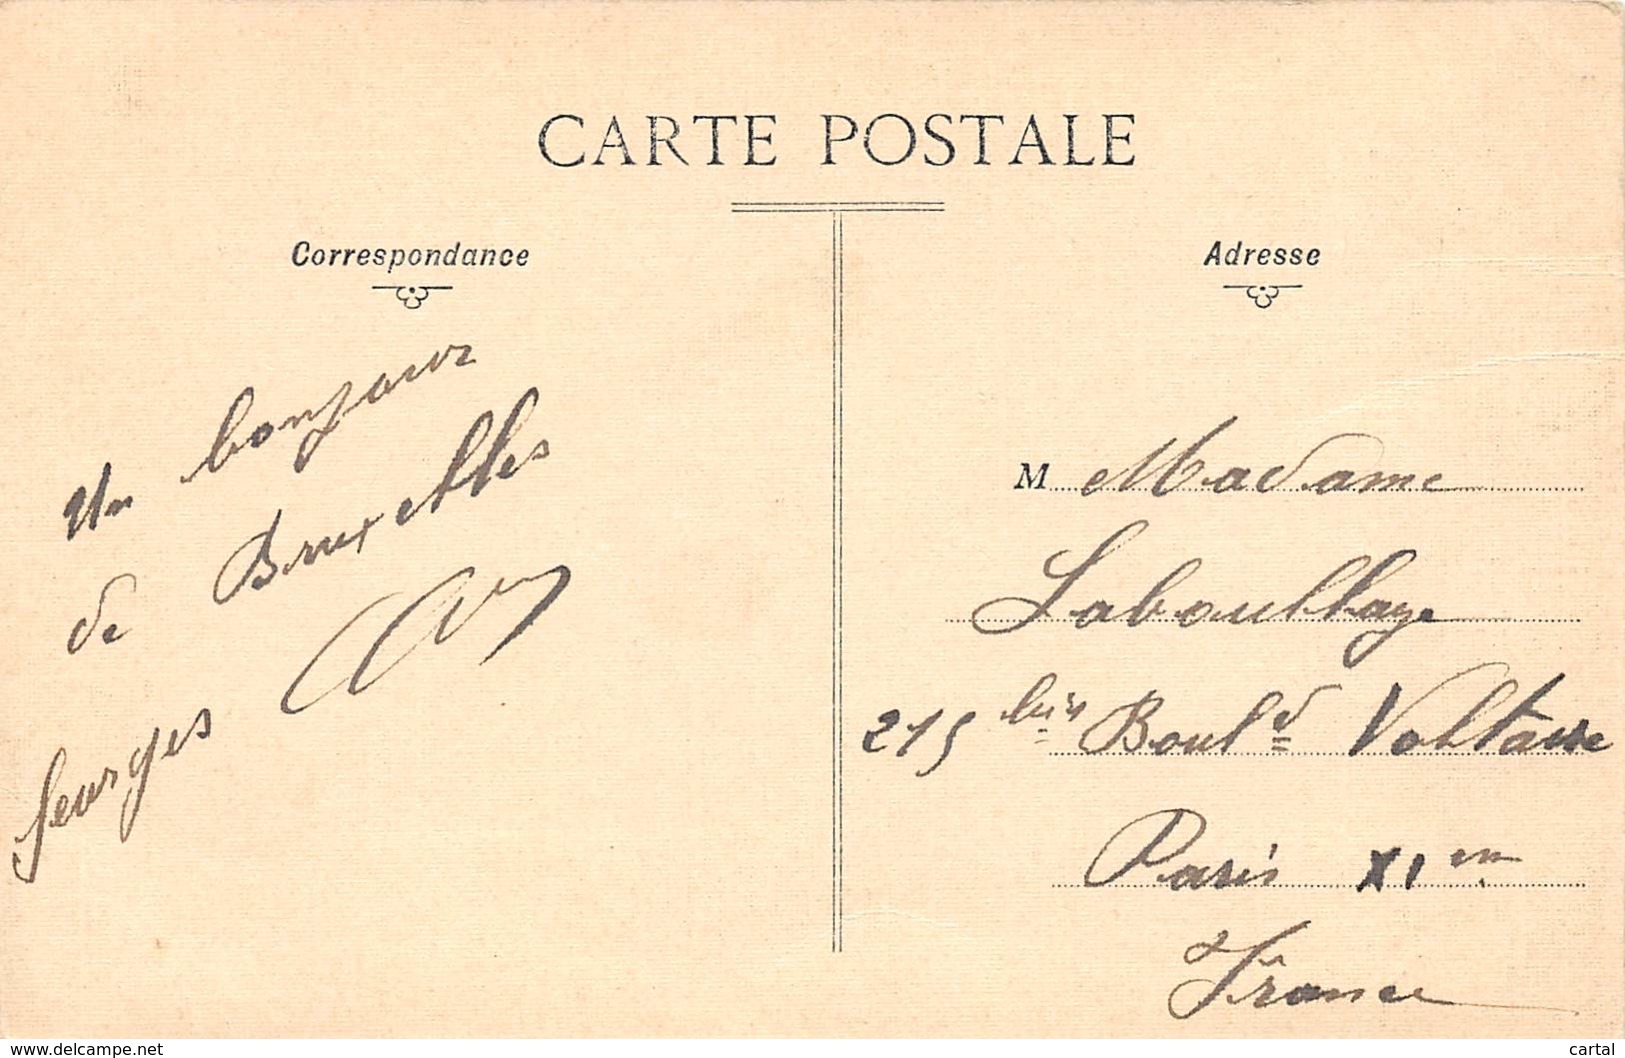 CARTE POSTALE
Correspondance
Un bonjour
de Bruxelles
Georges
Adresse
M Madame
Laboullaye
215 bis Boul.d Voltaire
Paris XI em
France
www.delcampe.net
cartal